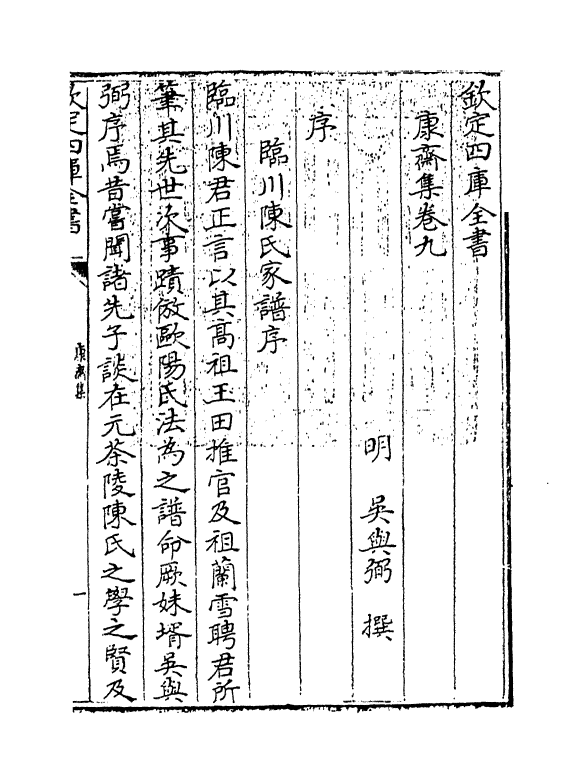 欽定四庫全書
康齋集卷九
明 吳與弼 撰
序
臨川陳氏家譜序
臨川陳君正言以其高祖玉田推官及祖蘭雪聘君所
筆其先世次事蹟倣歐陽氏法為之譜命厥妹壻吳與
弼序焉昔嘗聞諸先子談在元茶陵陳氏之學之賢及
欽定四庫全書
康齋集
一